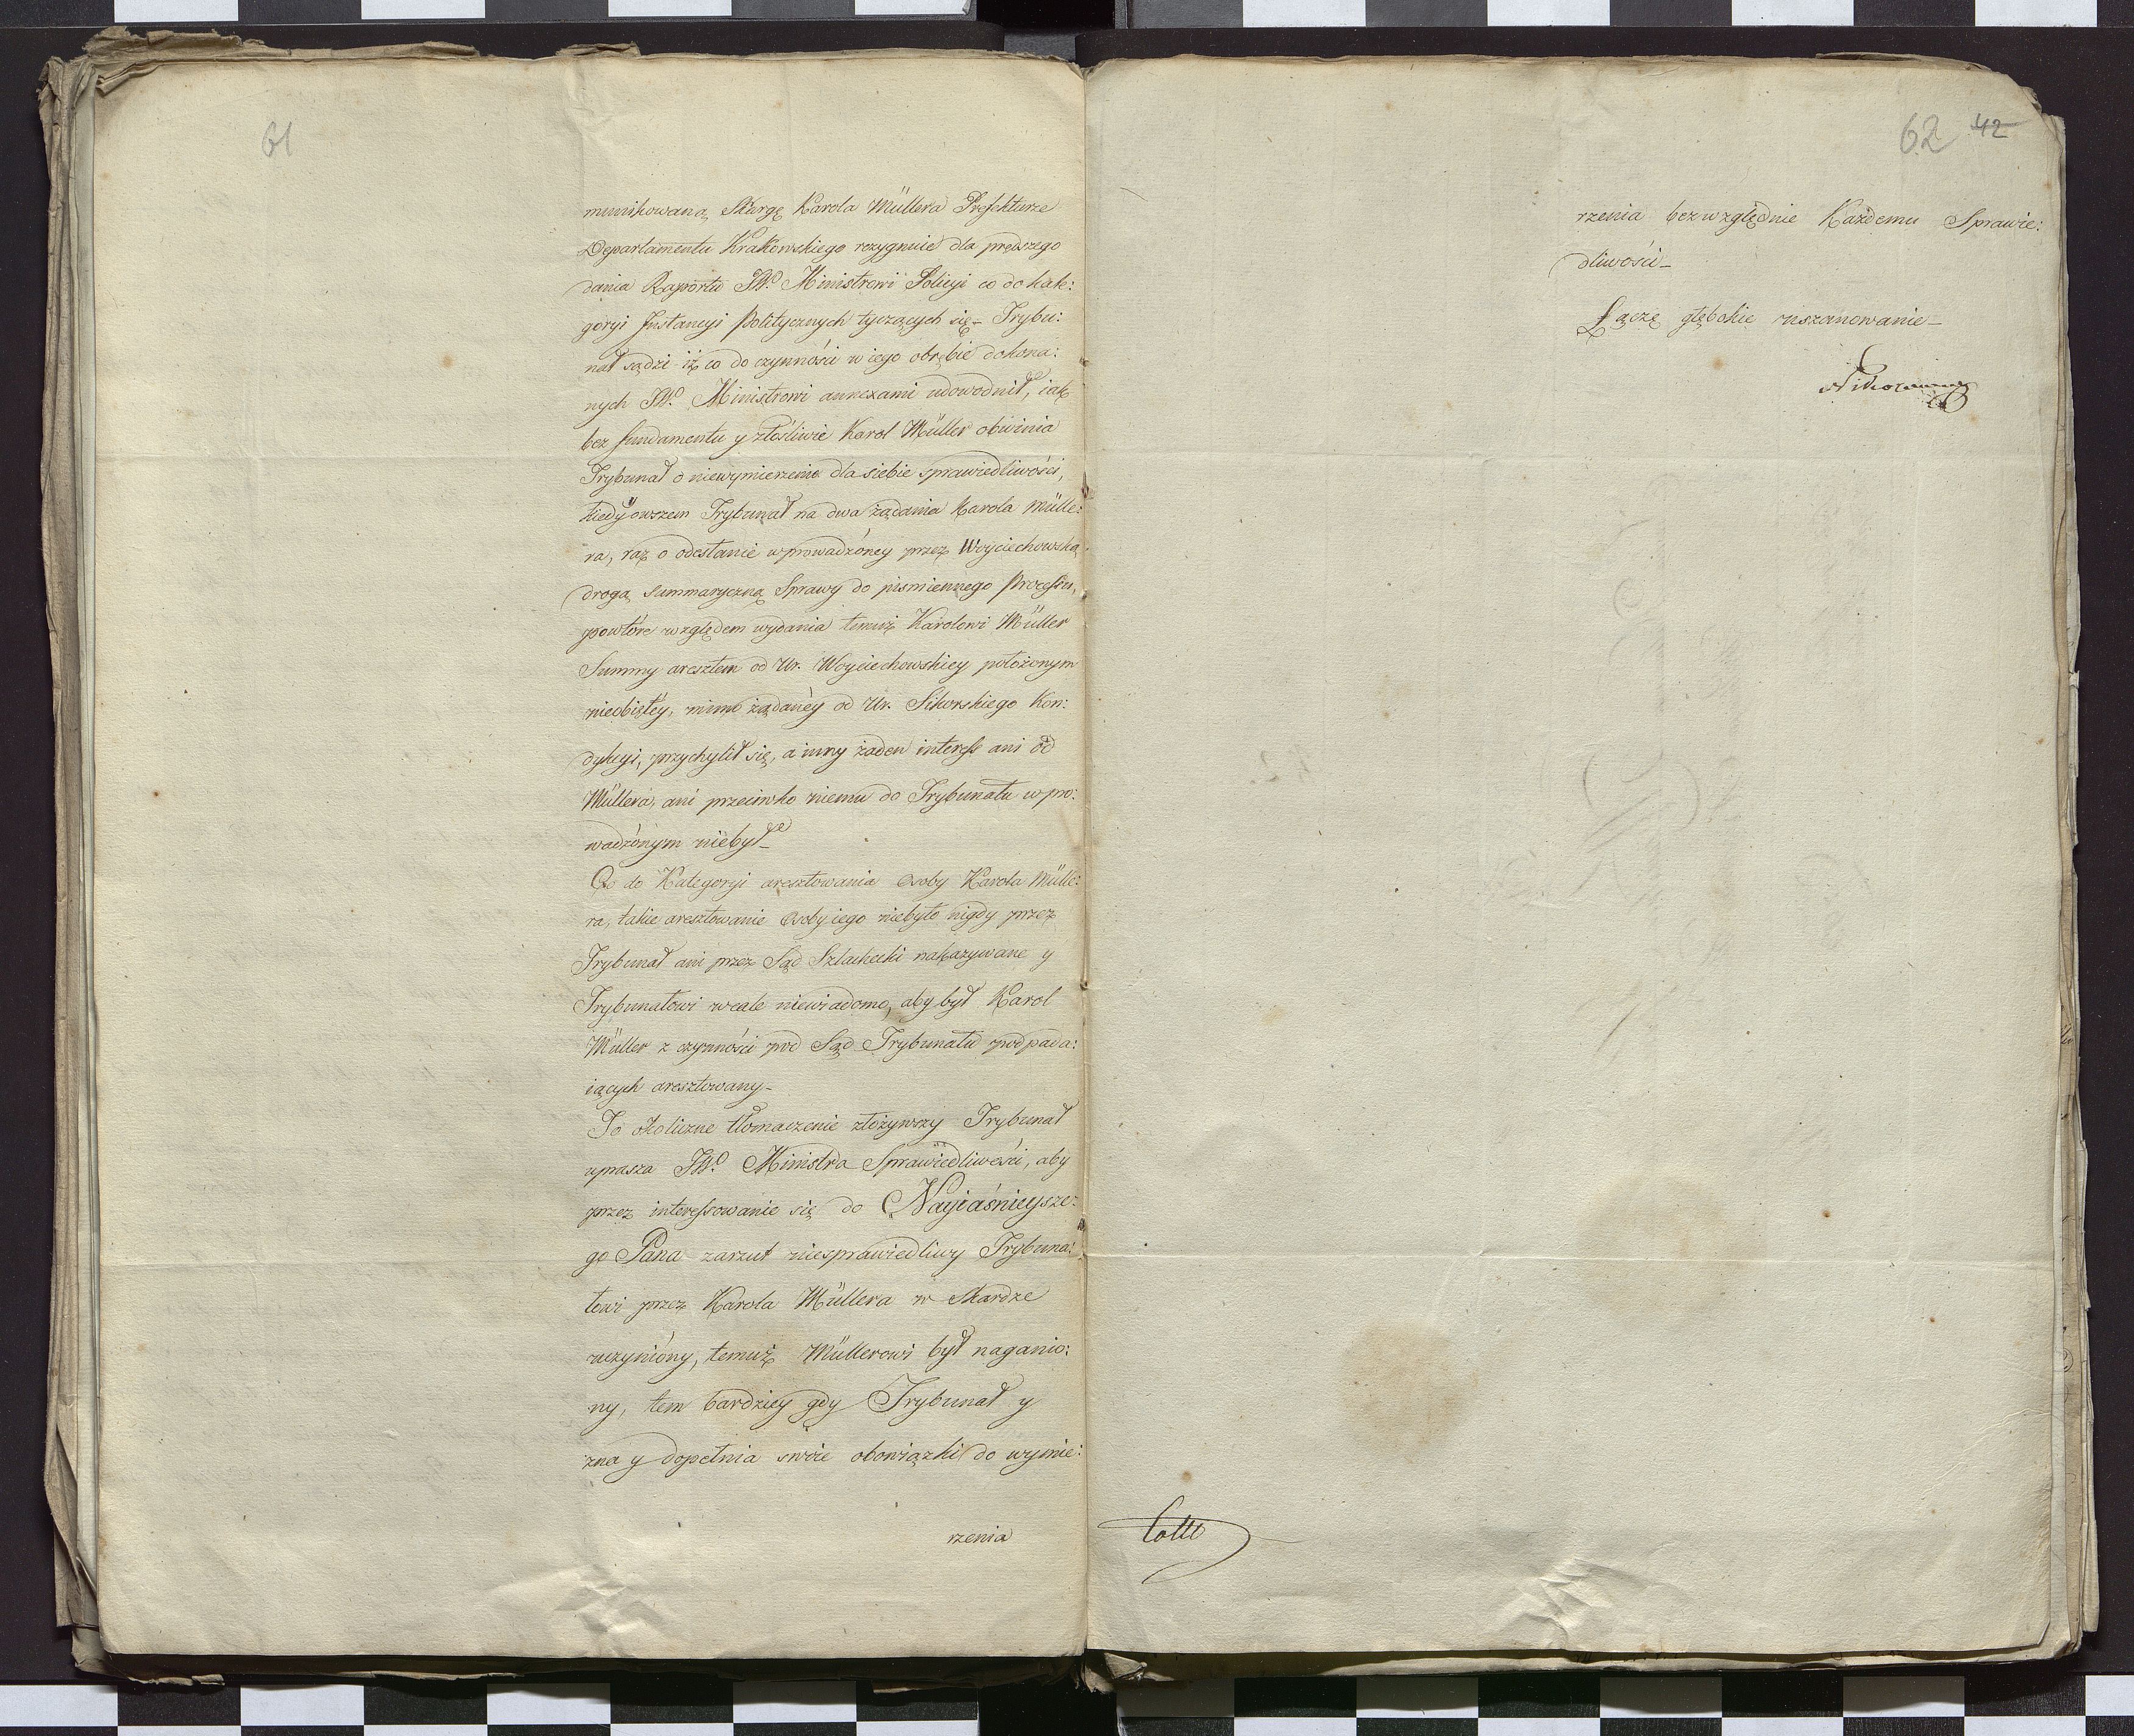 61
munikowaną Skargę Karola Müllera Prefekturze
Departamentu Krakowskiego rezygnuie dla prędszego
dania Raportu JW. Ministrowi Policyi co do kate:
goryi Instancyi Politycznych tyczących się_ Trybu:
nał sądzi iż co do czynności w iego obrębie dokona:
nych JW. Ministrowi annexami udowodnił, iak
bez fundamentu y złośliwie Karol Müller obwinia
Trybunał o niewymierzenie dla siebie sprawiedliwości,
kiedy owszem Trybunał na dwa żądania Karola Mülle:
ra, raz o odesłanie wprowadzóney przez Woyciechowską
drogą summaryczną Sprawy do pismiennego Processu,
powtóre względem wydania temuż Karolowi Müller
Summy aresztem od Ur. Woyciechowskiey położonym
nieobiętéy, mimo żądanéy od Ur. Sikorskiego Kon:
dykcyi, przychylił się, a inny żaden interess ani od
Müllera, ani przeciwko niemu do Trybunału wpro:
wadzónym niebył_
Co do Kategoryi aresztowania Osoby Karola Mülle:
ra, takie aresztowanie Osoby iego niebyło nigdy przez
Trybunał ani przez Sąd Szlachecki nakazywane y
Trybunałowi wcale niewiadomo, aby był Karol
Müller z czynności pod Sąd Trybunału podpada:
iących aresztowany_
To okoliczne tłomaczenie złożywszy Trybunał
uprasza JW. Ministra Sprawiedliwości, aby
przez interessowanie się do Nayiaśnieysze:
go Pana zarzut niesprawiedliwy Trybuna:
łowi przez Karola Müllera w Skardze
uczynióny, temuż Müllerowi był naganio:
ny, tem bardziey gdy Trybunał y
zna y dopełnia swoie obowiązki do wymie:
rzenia
62 42
rzenia bezwzględnie Każdemu Sprawie:
dliwości_
Łączę głębokie uszanowanie_